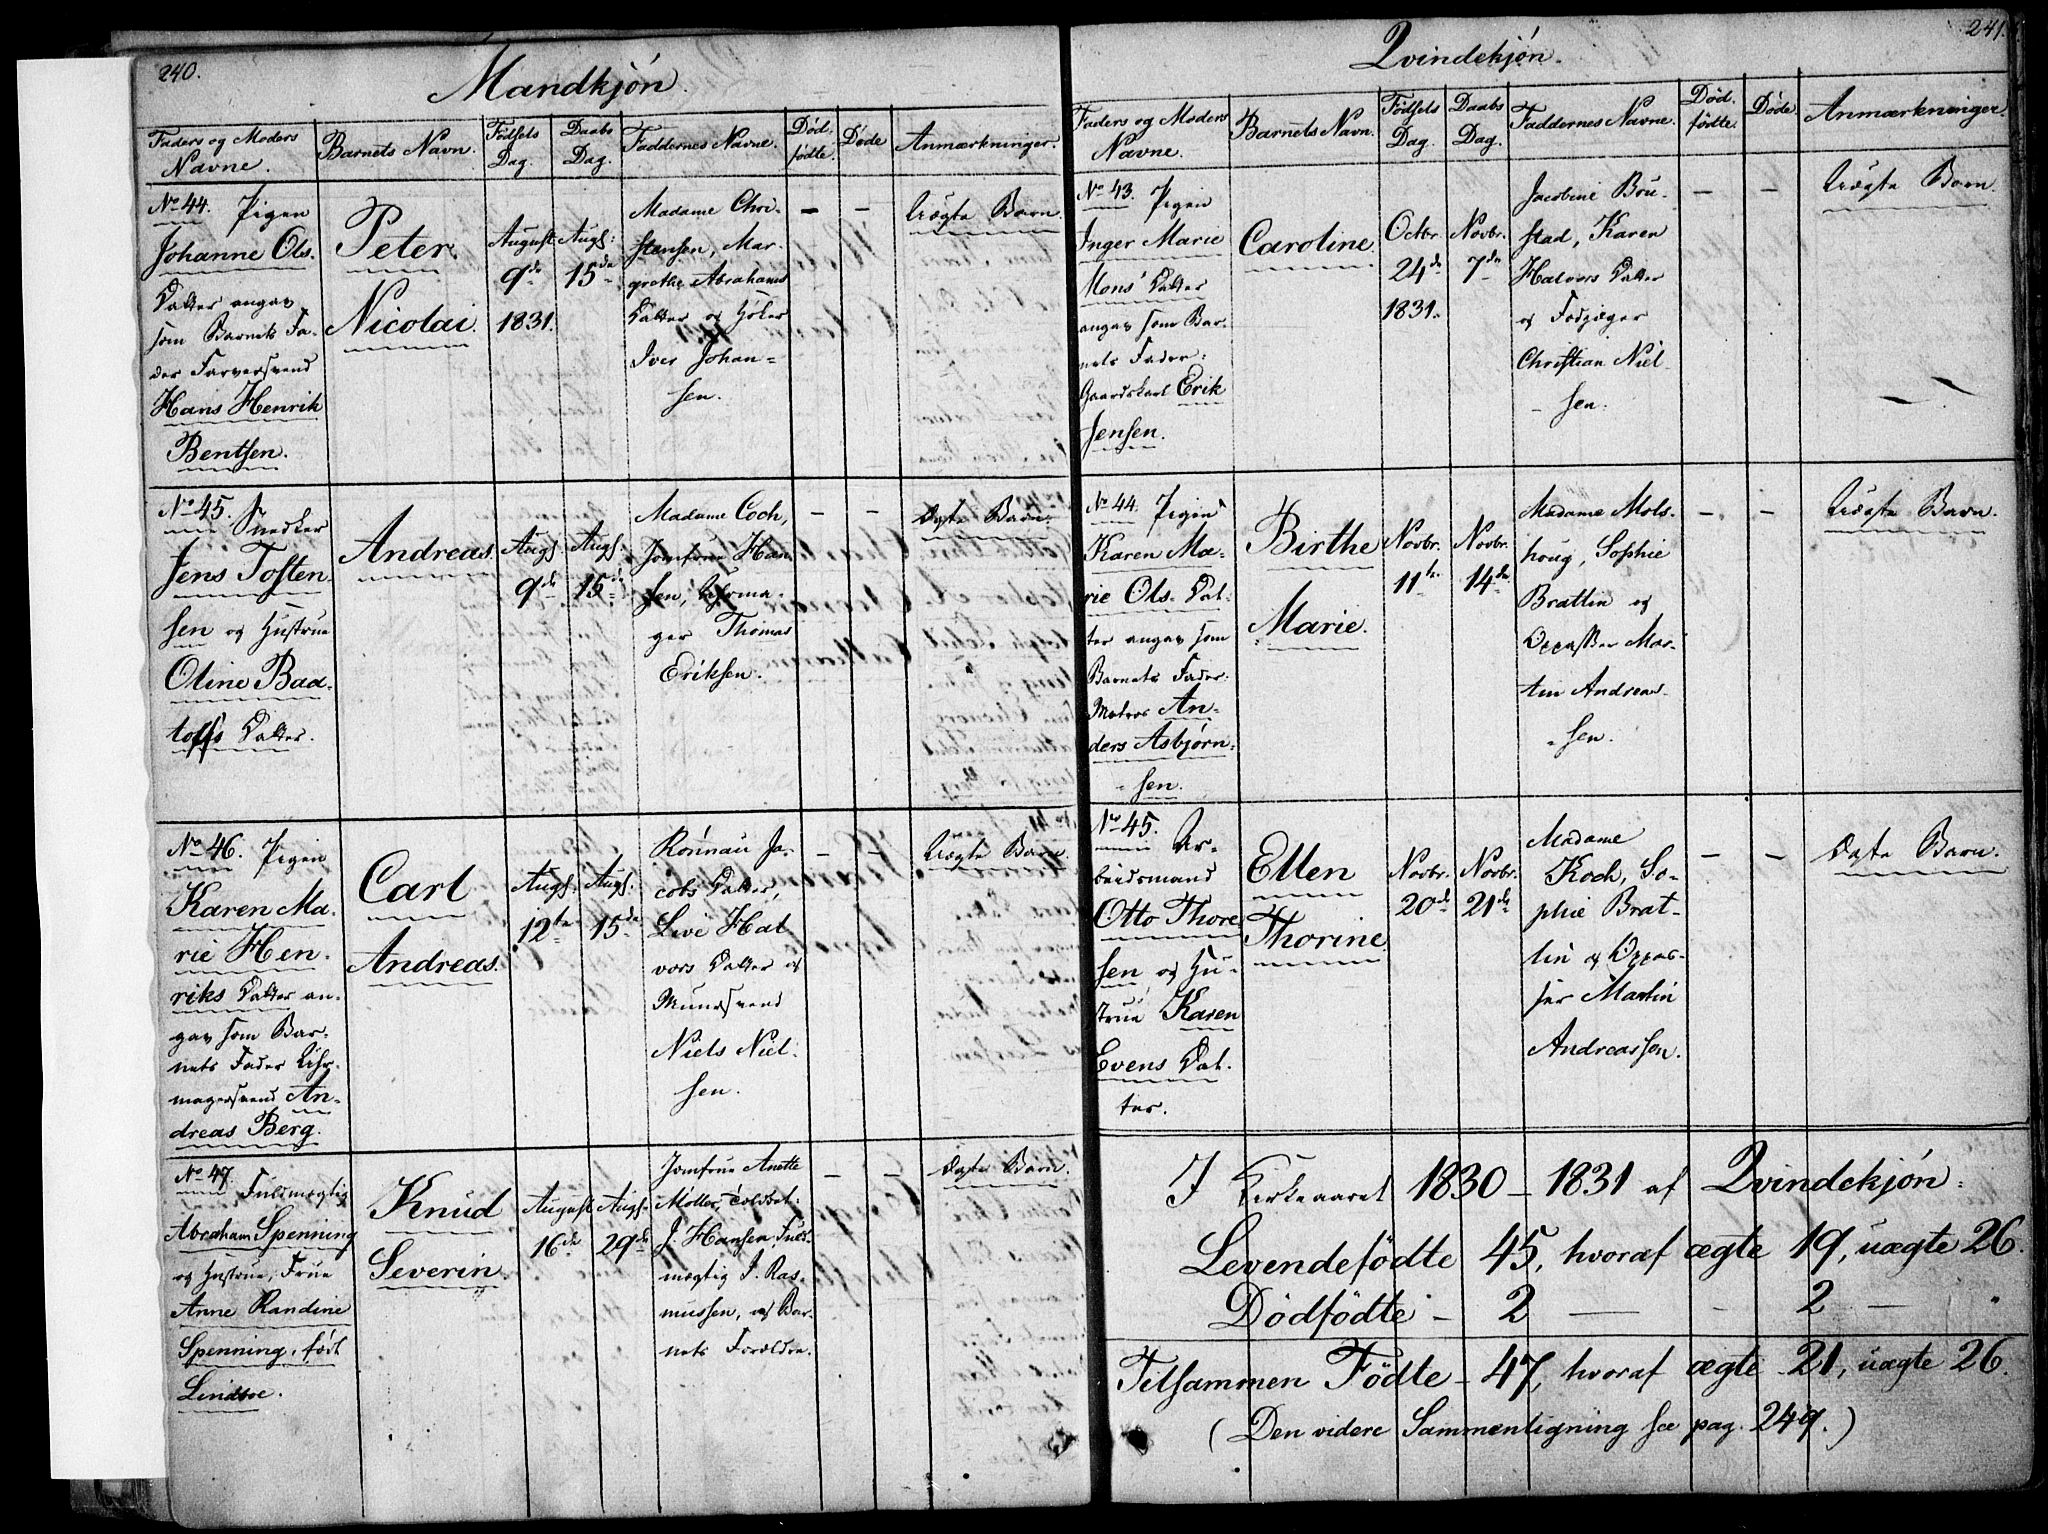 240.
Mandkjøn.
Faders og Moders
Navne.
Barnets Navn.
Fødsels
Dag.
Daabs
Dag.
Faddernes Navne.
Død-
fødte.
Døde
Anmærkninger.
No 44. Pigen
Johanne Ols-
Datter angav
som Barnets Fa-
der Farversvend
Hans Henrik
Bentsen.
Peter
Nicolai
August
9de
1831.
Augs:
15de
Madame Chri-
stensen, Mar-
grethe Abrahams
Datter og
Iver Johan-
sen.
-
-
Uægte Barn
No 45. Snedker
Jens Tosten-
sen og Hustrue
Oline Baa-
Datter.
Andreas.
Augs.
9de
Augs.
15de
Madame Coch,
Jomfrue Han-
sen, Uhrma-
ger Thomas
Eriksen.
-
-
Ægte Barn.
No 46. Pigen
Karen Ma-
rie Hen-
riks Datter an-
gav som Bar-
nets Fader Uhr-
magersvend An-
dreas Berg.
Carl
Andreas.
Augs.
12te
Augs.
15de
Rönnau Ja-
cobs Datter,
Live Hal
vors Datter og
Muursvend
Niels Niel-
sen.
-
-
Uægte Barn.
No 47. Fuldmægtig
Abraham Spenning
og Hustrue, Frue
Anne Randine
Spenning, født
Lindboe.
Knud
Severin.
August
16de
Augs.
29de
Jomfrue Anette
Møller,
J. Hansen, Fuld-
mægtig J. Ras-
mussen, og Bar-
nets Forældre.
-
-
Ægte Barn.
241.
Qvindekjøn.
Faders og Moders
Navne.
Barnets Navn.
Fødsels
Dag.
Daabs
Dag.
Faddernes Navne.
Død-
fødte.
Døde.
Anmærkninger.
No 43. Pigen
Inger Marie
Mons' Datter
angav som Bar-
nets Fader:
Gaardskarl Erik
Jensen.
Caroline.
Octbr.
24de
1831.
Novbr.
7de
Jacobine Bru-
stad, Karen
Halvors Datter
og Fodjæger
Christian Niel-
- sen.
-
-
Uægte Barn.
No 44. Pigen
Karen Ma-
rie Ols. Dat-
ter angav som
Barnets Fader:
Matros An-
ders Asbjørn-
- sen.
Birthe
Marie.
Novbr.
11te
Novbr.
14de
Madame Mols-
houg, Sophie
Brattlin og
Oppasser Mar-
tin Andreas-
- sen.
-
-
Uægte Barn.
No 45. Ar-
beidsmand
Otto Thore
sen og Hu-
strue Karen
Evens Dat-
ter.
Ellen
Thorine.
Novbr.
20de
Novbr.
21de
Madame
Koch, So-
phie Brat-
lin og Oppas-
ser Martin
Andreassen.
-
-
Ægte Barn.
I Kirkeaaret 1830 - 1831 af Qvindekjön:
Levendefödte 45, hvoraf ægte 19, uægte 26.
Dödfödte - 2 - - 2 -
Tilsammen Födte - 47, hvoraf ægte 21, uægte 26.
(Den videre Sammenligning see pag. 249.)